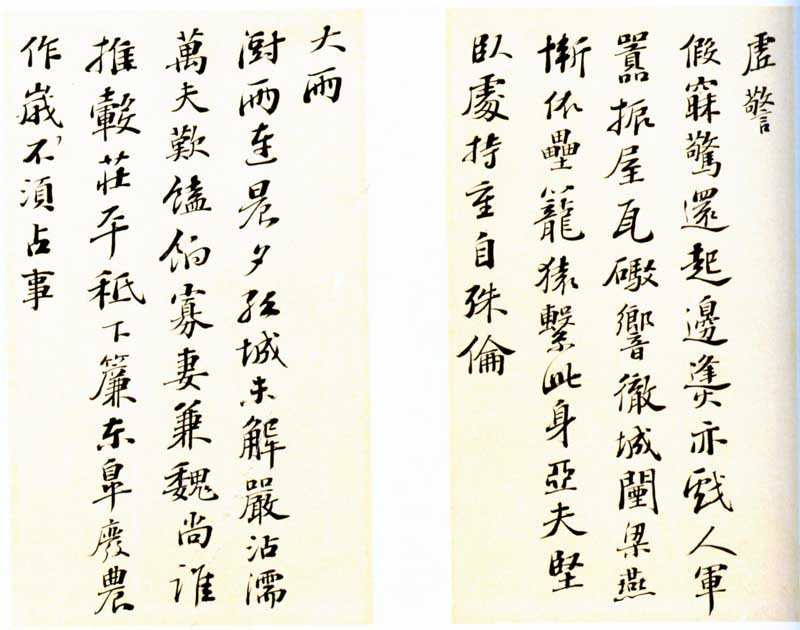 虛警
假寐驚還起邊㷭亦戲人軍
囂振屋瓦礮響徹城闉梁燕
慚依壘籠猿繫此身亞夫堅
臥處持重自殊倫
大雨
澍雨連晨夕孤城未解嚴沾濡
萬夫歎饁餉寡妻兼魏尚誰
推轂莊平秖下簾東皋廢農
作歲不須占事